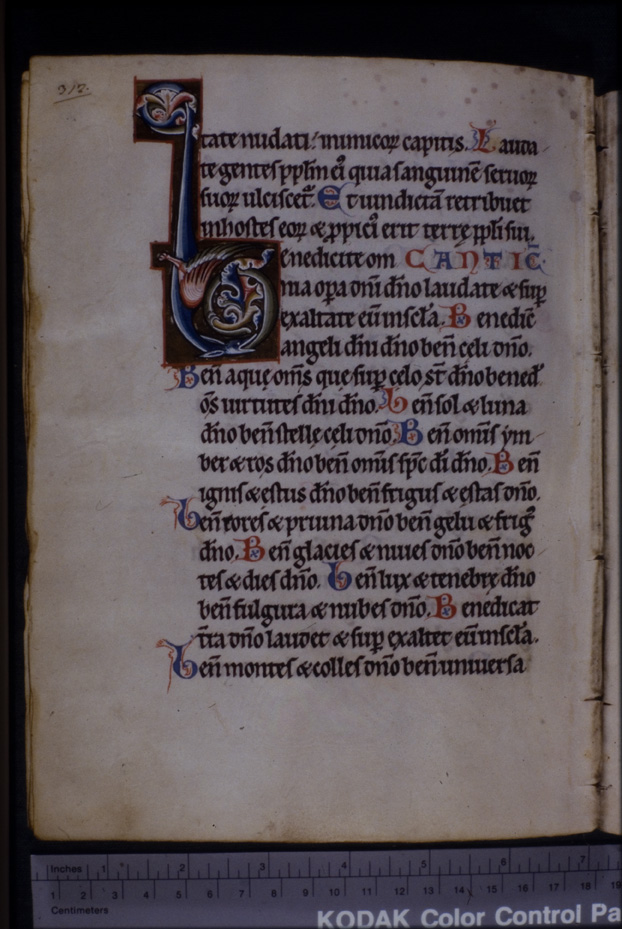 312.
tate nudati: inimicoꝝ capitis. Lauda
te gentes pplm ei quia sanguinē seruoꝝ
suoꝝ ulciscet. Et uindictā retribuet
in hostes eoꝝ & ppici erit terrę ppli sui.
Benedicite om CANTIC̄.
nia opa dni dño laudate & sup
exaltate eū in scła. B enedic̄
angeli dni dño beñ cęli dño.
Beñ aquę om̄s quę sup cęlo st dño bened
om̄s uirtutes dni dño. beñ sol & luna
dño beñ stellę cęli dño. Beñ omis ym
ber & ros dño beñ omis spc di dño. B eñ
ignis & estus dño beñ frigus & estas dño.
beñ rores & pruina dño beñ gelu & frig
dño. B eñ glacies & niues dño beñ noc
tes & dies dño. beñ lux & tenebrę dño
beñ fulgura & nubes dño. B enedicat
tra dño laudet & sup exaltet eū in scła.
beñ montes & colles dño beñ uniuersa
Inches 1 2 3 4 5 6 7
1 2 3 4 5 6 7 8 9 10 11 12 13 14 15 16 17 18 19
Centimeters
KODAK Color Control Pa